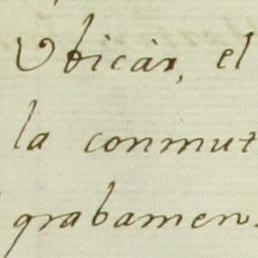 Ubicàr, el
la conmut
grabamen.